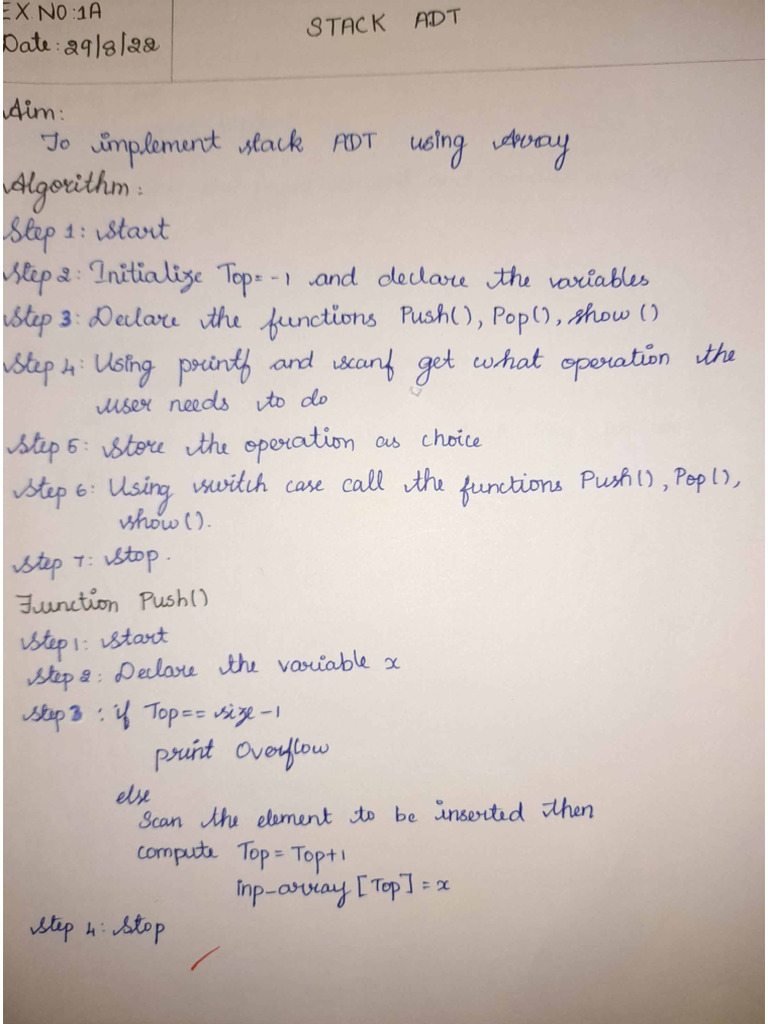 EX NO:1A
STACK ADT
Date: 29/8/22
Aim:
To implement stack ADT using Array
Algorithm:
Step 1: Start
Step 2: Initialize Top=-1 and declare the variables
Step 3: Declare the functions Push(), Pop(), show ()
Step 4: Using printf and scanf get what operation the
user needs to do
Step 5: Store the operation as choice
Step 6: Using switch case call the functions Push(), Pop(),
show().
Step 7: Stop.
Function Push()
Step 1: Start
Step 2: Declare the variable x
Step 3: if Top== size-1
print Overflow
else
Scan the element to be inserted then
compute Top = Top+1
inp-array [Top] = x
Step 4: Stop